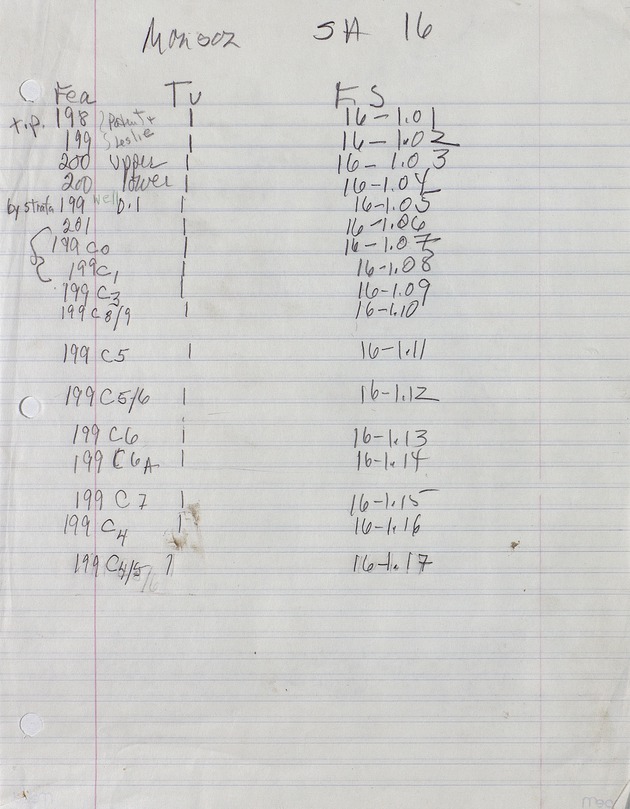 Monsoon SA 16
Fea Tu F S
t.p. 198 1 16-1.01
199 Leslie 1 16-1.02
200 upper 1 16-1.03
200 lower 1 16-1.04
by strata 199 well D.1 1 16-1.05
201 1 16-1.06
199 C0 1 16-1.07
199 C1 1 16-1.08
199 C3 1 16-1.09
199 C8/9 1 16-1.10
199 C5 1 16-1.11
199 C5/6 1 16-1.12
199 C6 1 16-1.13
199 C6A 1 16-1.14
199 C7 1 16-1.15
199 C4 1 16-1.16
199 C4/5/6 1 16-1.17